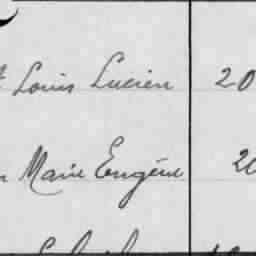 Louis Lucien 20
Marie Eugène 20